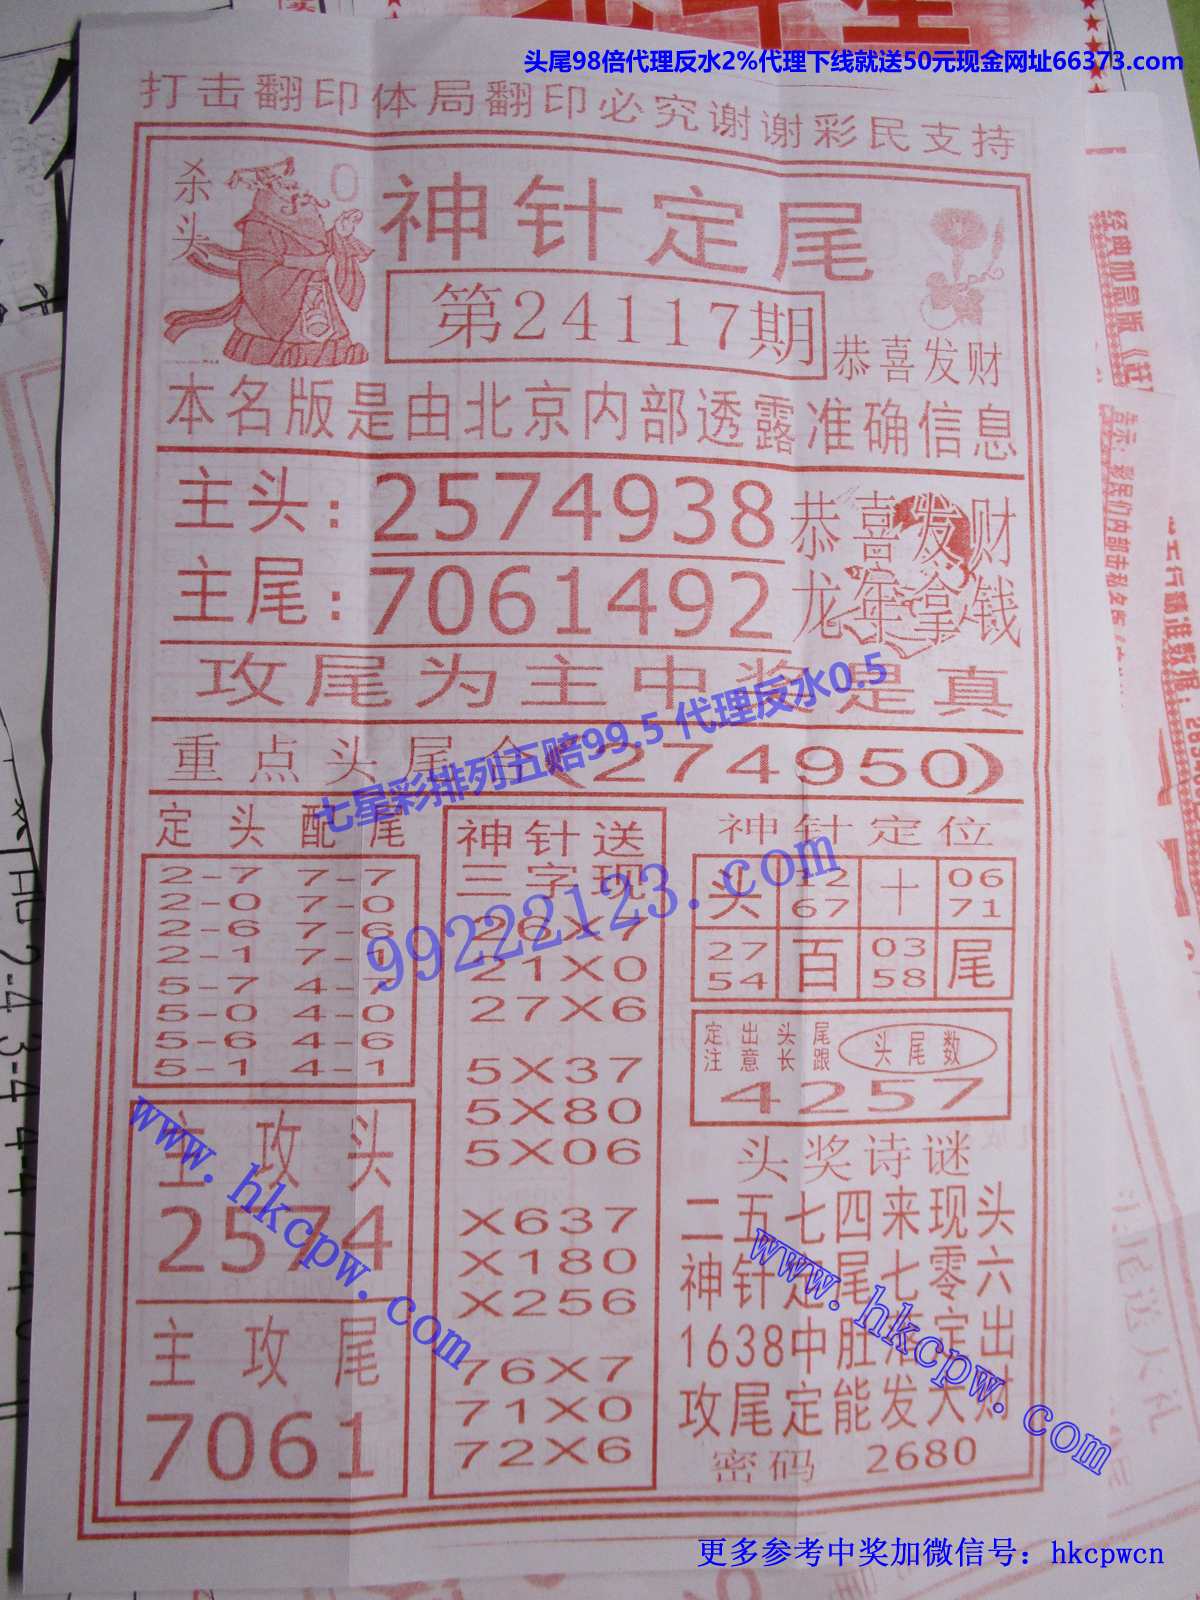 头尾98倍代理反水2%代理下线就送50元现金网址66373.com
打击翻印体局翻印必究谢谢彩民支持
杀头
0
神针定尾
第24117期
恭喜发财
本名版是由北京内部透露准确信息
主头:2574938
主尾:7061492
恭喜发财
龙年拿钱
攻尾为主中奖是真
重点头尾合(274950)
七星彩排列五赔99.5 代理反水0.5
99222123.com
定头配尾
2-7 7-7
2-0 7-0
2-6 7-6
2-1 7-1
5-7 4-7
5-0 4-0
5-6 4-6
5-1 4-1
主攻头
2574
主攻尾
7061
神针送
三字现
26X7
21X0
27X6
5X37
5X80
5X06
X637
X180
X256
76X7
71X0
72X6
神针定位
头 12 十 06
67 71
27 百 03 尾
54 58
定出头尾
注意长跟
头尾数
4257
头奖诗谜
二五七四来现头
神针定尾七零六
1638中肚落定出
攻尾定能发大财
密码 2680
www.hkcpw.com
www.hkcpw.com
更多参考中奖加微信号：hkcpwcn
经典加急版